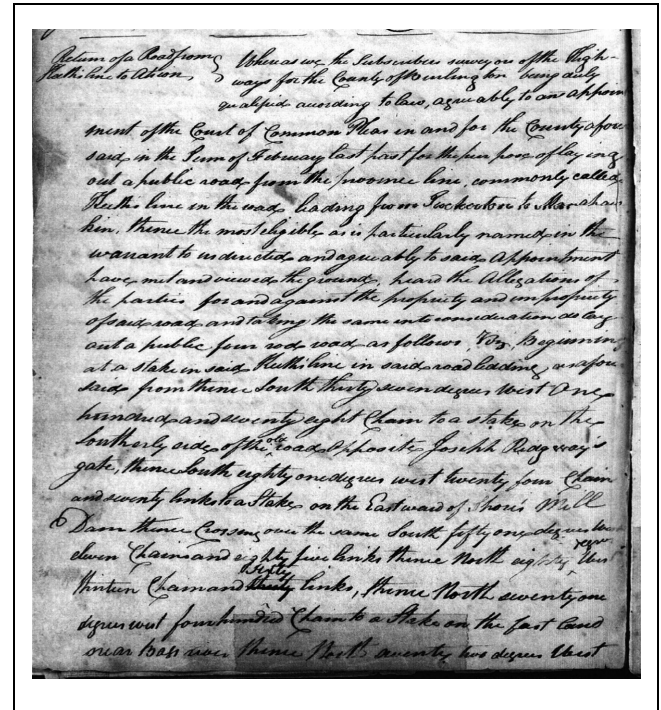 Return of a Road from
Keiths line to Atsion,
Whereas we the Subscribers surveyors of the High-
ways for the County of Burlington being duly
qualified according to law, agreeably to an appoin
ment of the Court of Common Pleas in and for the County afore
said in the Term of February last past for the purpose of laying
out a public road from the province line, commonly called
Keiths line in the road leading from Tuckerton to Manahaw
kin, thence the most eligible as is particularly named in the
warrant to us directed and agreeably to said Appointment
have met and viewed the ground, heard the Allegations of
the parties for and against the propriety and impropriety
of said road and taking the same into consideration do lay
out a public four rod road as follows, Viz, Beginning
at a stake in said Keiths line in said road leading as afore
said from thence South thirty seven degrees west One
hundred and seventy eight Chain to a stake on the
Southerly side of the old road Opposite Joseph Ridgway's
gate, thence South eighty one degrees west twenty four Chain
and seventy links to a Stake on the Eastward of Mill
Dam thence Crossing over the same South fifty one degrees West
eleven Chains and eighty five links thence North eighty degrs West
thirteen Chain and links, thence North seventy one
degrees west four hundred Chain to a Stake on the fast land
near Bass river thence North seventy two degrees West